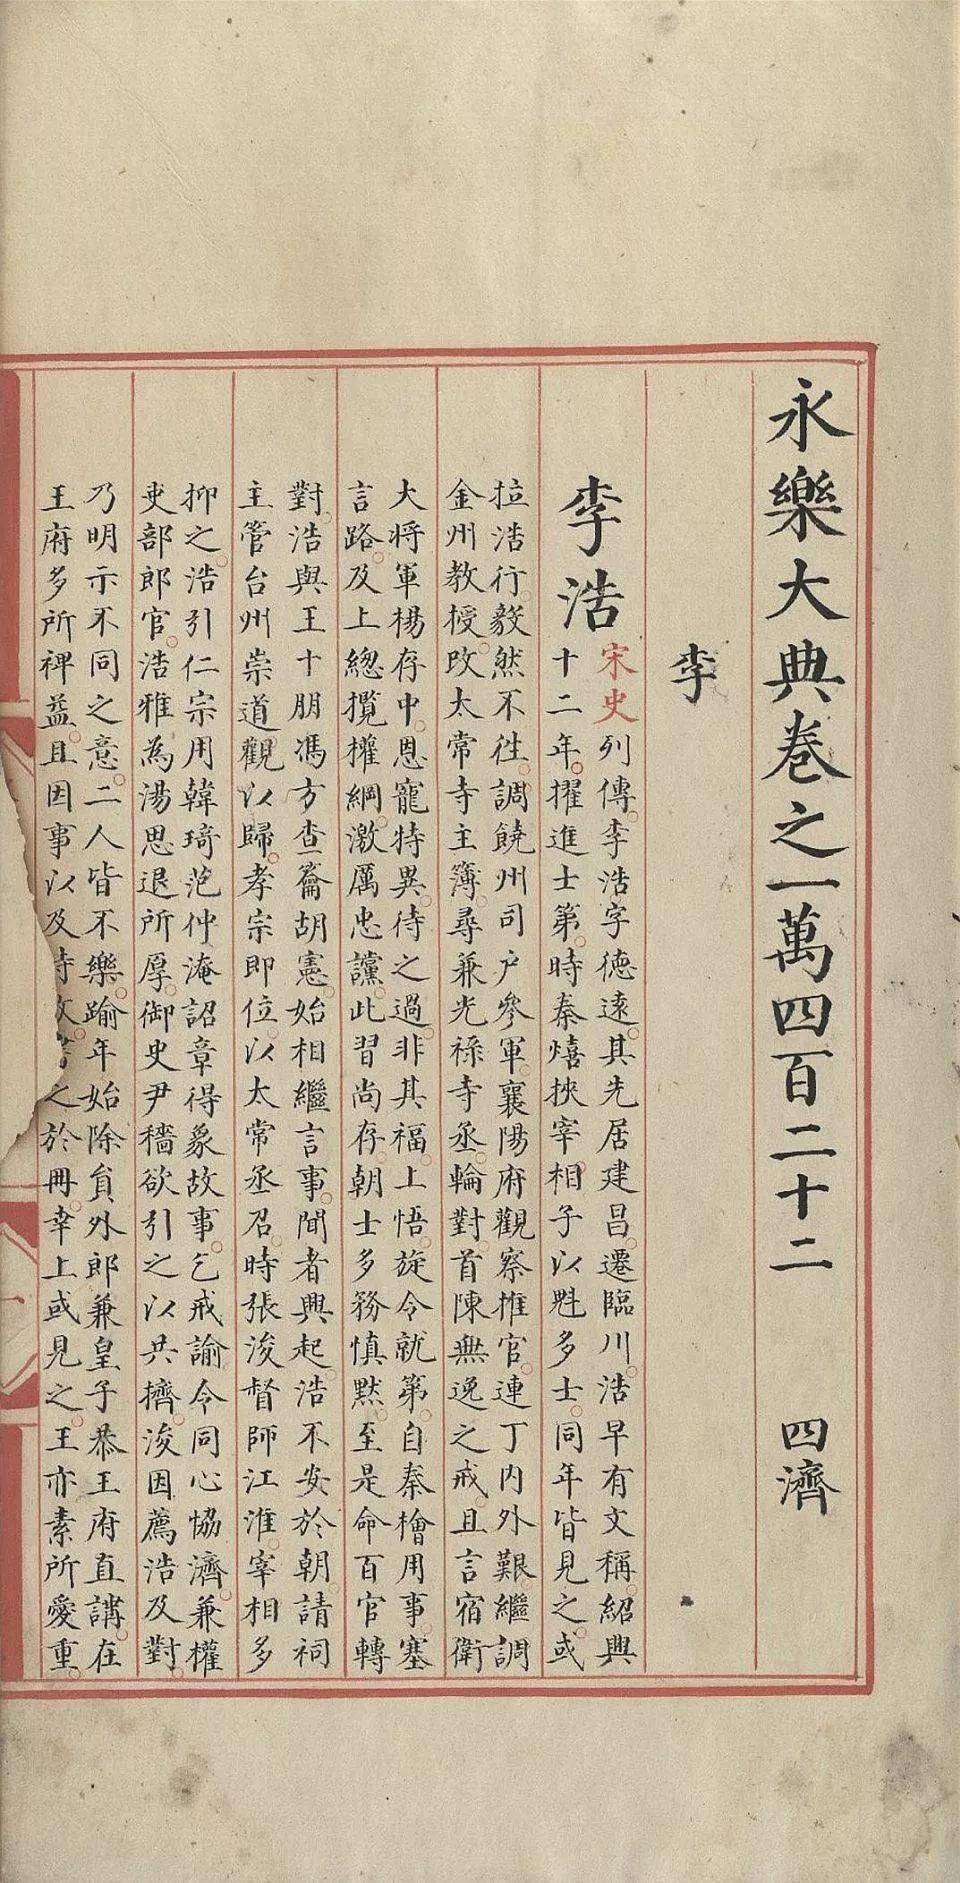 永樂大典卷之一萬四百二十二 四濟
李
李浩
宋史列傳李浩字德遠其先居建昌遷臨川浩早有文稱紹興
十二年擢進士第時秦熺挾宰相子以魁多士同年皆見之或
拉浩行毅然不往調饒州司户參軍襄陽府觀察推官連丁内外艱繼調
金州教授改太常寺主簿尋兼光祿寺丞輪對首陳無逸之戒且言宿衛
大將軍楊存中恩寵特異待之過非其福上悟旋令就第自秦檜用事塞
言路及上總攬權綱激厲忠讜此習尚存朝士多務慎默至是命百官轉
對浩與王十朋馮方查籥胡憲始相繼言事聞者興起浩不安於朝請祠
主管台州崇道觀以歸孝宗即位以太常丞召時張浚督師江淮宰相多
抑之浩引仁宗用韓琦范仲淹詔章得象故事乞戒諭令同心協濟兼權
吏部郎官浩雅為湯思退所厚御史尹穡欲引之以共擠浚因薦浩及對
乃明示不同之意二人皆不樂踰年始除貟外郎兼皇子恭王府直講在
王府多所裨益且因事以及時政之於冊幸上或見之王亦素所愛重